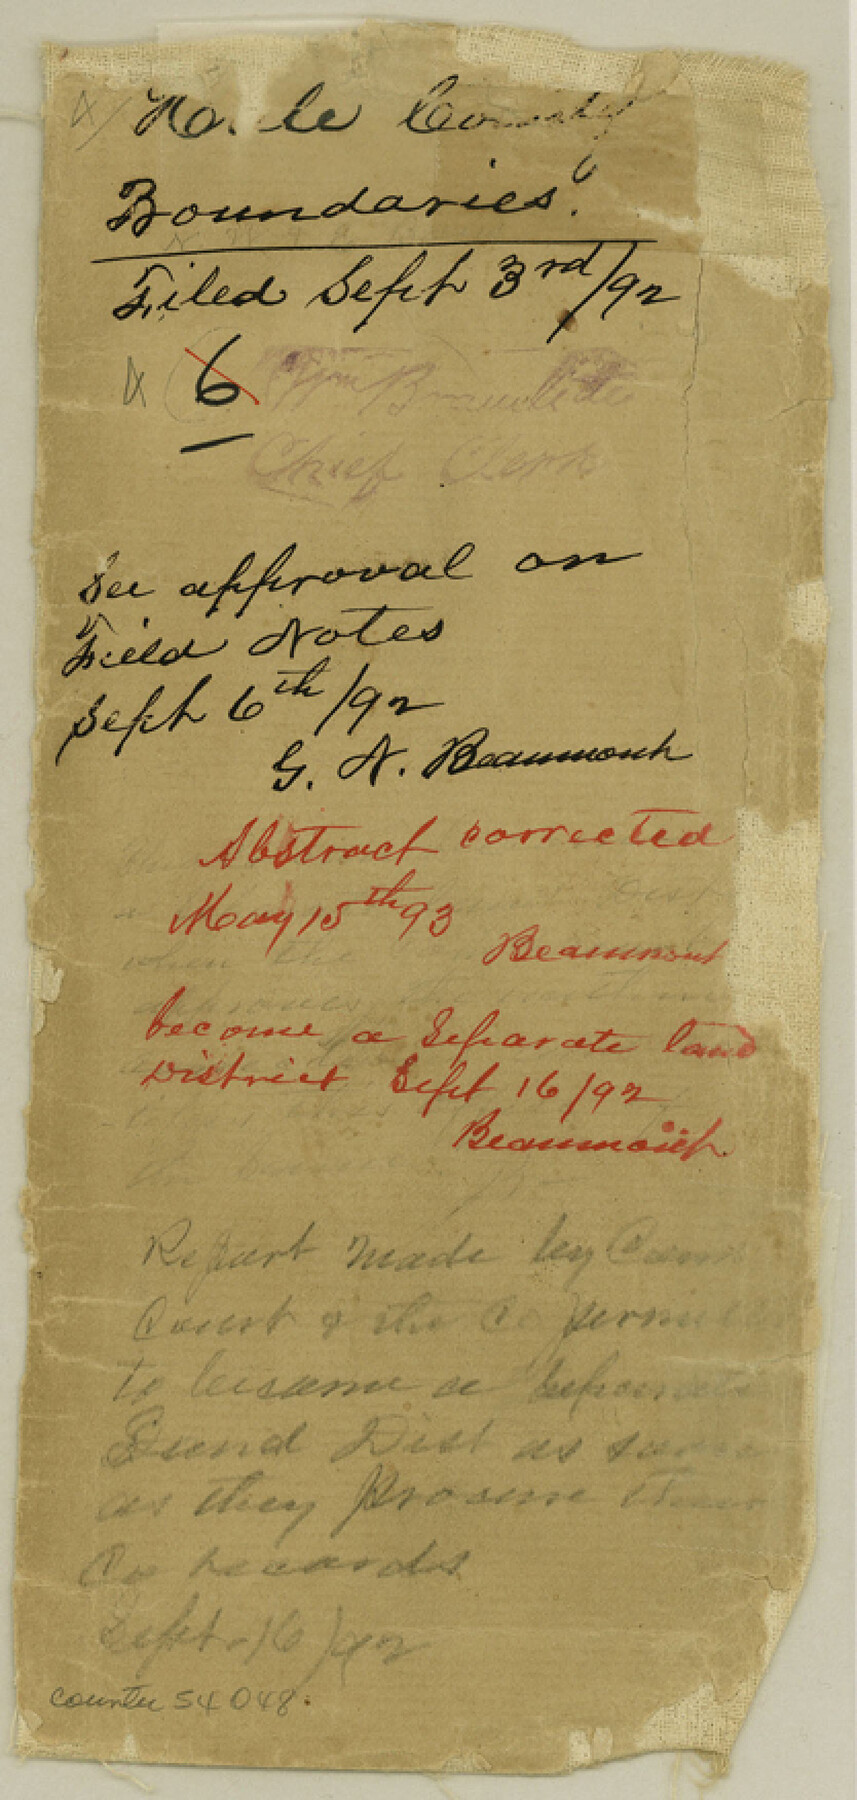 County
Boundaries.
Filed Sept 3rd/92
6
Chief Clerk
See approval on
Field Notes
Sept 6th/92
G. N. Beaumont
Abstract corrected
May 15th 93
Beaumont
become a Separate land
District Sept 16/92
Beaumont.
Report made by Com
Court & the Co
to become a Seperate
Land Dist as soon
as they procure their
Co records
Sept. 16/92
counter 54048.